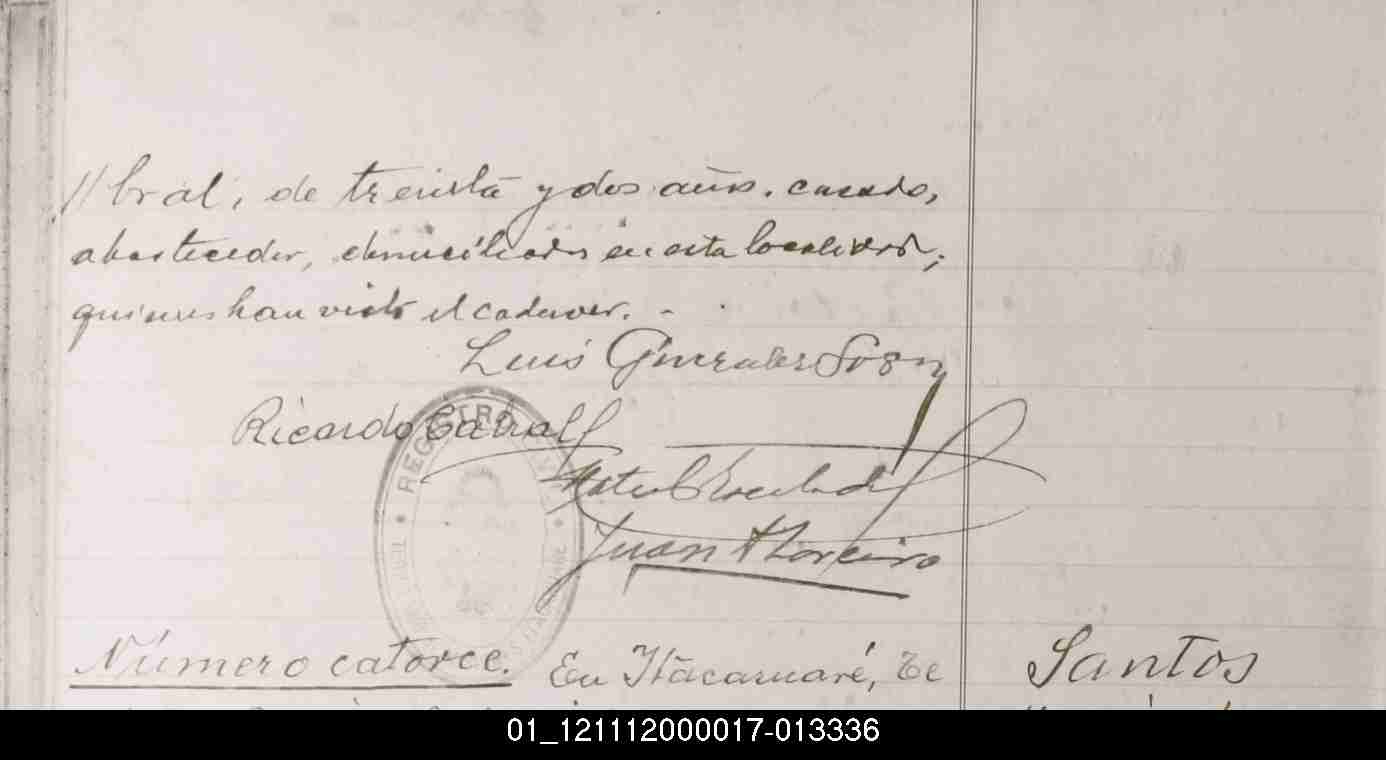 //bral, de treinta y dos años, casado,
abastecedor, domiciliados en esta localidad;
quienes han visto el cadaver. -
Luis Gonzales
Ricardo Cabral
REGISTRO
Juan A Loreiro
Número catorce. En Itacaruaré, Te
Santos
01_121112000017-013336